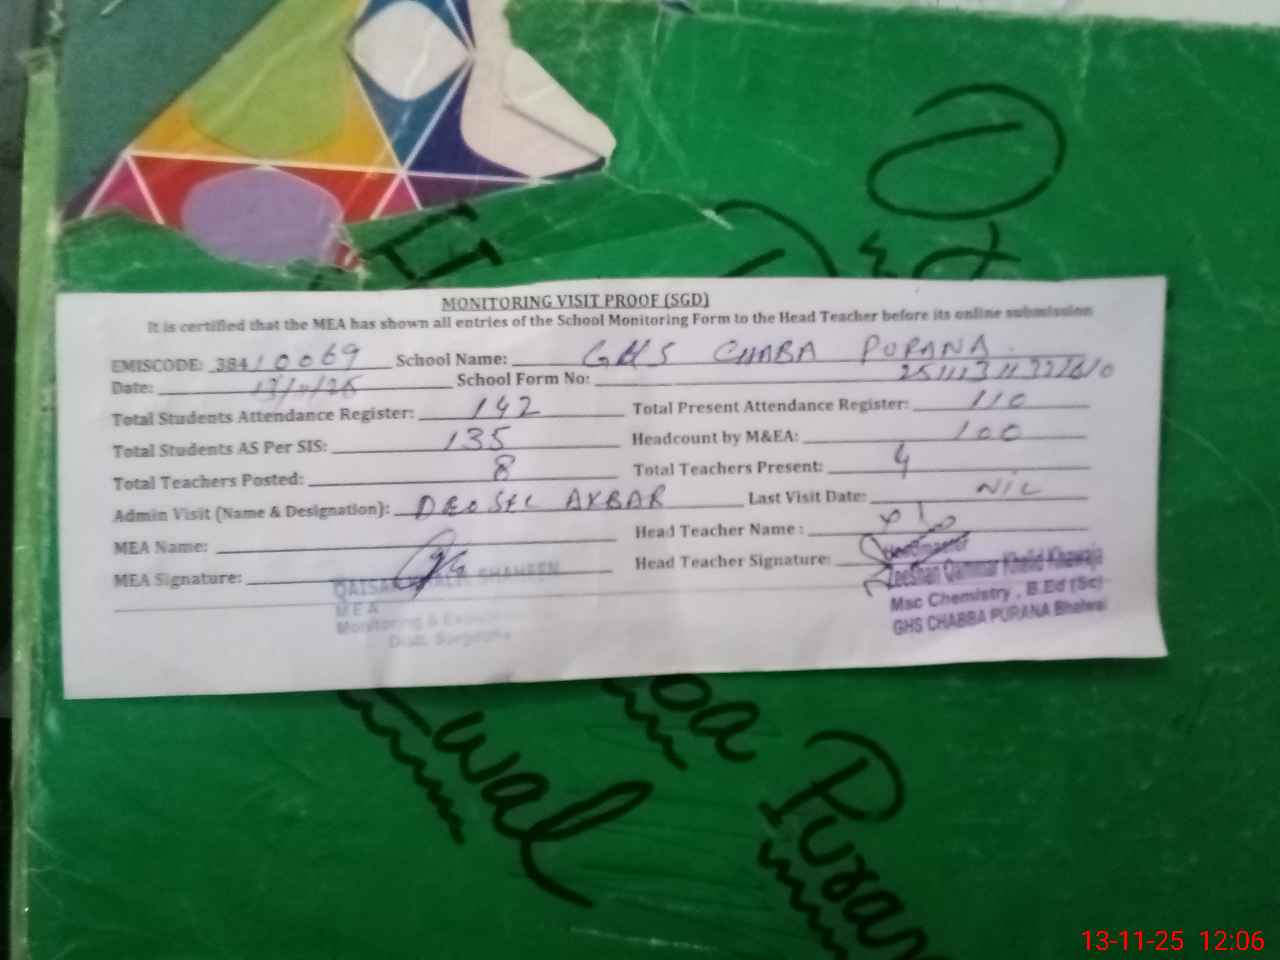 MONITORING VISIT PROOF (SGD)
It is certified that the MEA has shown all entries of the School Monitoring Form to the Head Teacher before its online submission
EMISCODE: 38410069 School Name: GHS CHABA PURANA.
Date: 13/11/25 School Form No:
Total Students Attendance Register: 142 Total Present Attendance Register: 110
Total Students AS Per SIS: 135 Headcount by M&EA: 100
Total Teachers Posted: 8 Total Teachers Present: 4
Admin Visit (Name & Designation): DEO SEC AKBAR Last Visit Date: NIL
MEA Name: Head Teacher Name :
MEA Signature: Head Teacher Signature:
SHAHEEN
MEA
Monitoring &
Distt. Sargodha
Headmaster
Zeeshan Qammar Khalid Khawaja
Msc Chemistry , B.Ed (Sc)
GHS CHABBA PURANA Bhalwal
wal
Puran
13-11-25 12:06